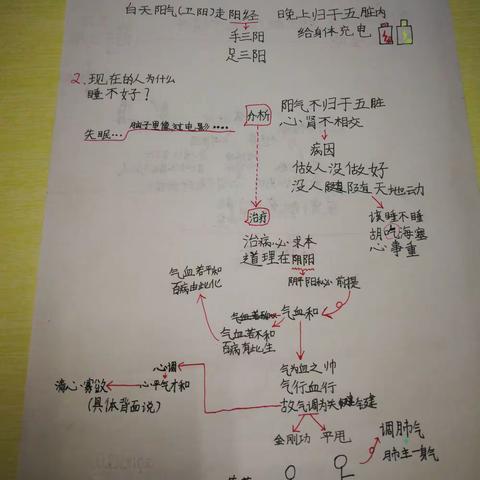 白天阳气(卫阳)走阳经
手三阳
足三阳
晚上归于五脏内
给身体充电
2.现在的人为什么
睡不好?
失眠…
脑子里像过电影…
办析
阳气不归于五脏
心肾不相交
病因
做人没做好
没人随天地动
该睡不睡
胡吃海塞
心事重
治疗
治病必求本
道理在阴阳
阴平阳秘 前提
气血和
气血若平和
百病由此化
气血若不和
百病有此生
气为血之帅
气行血行
故气调为关键
心调
心平气才和
清心寡欲
(具体背面说)
金刚功
平甩
调肺气
肺主一身气